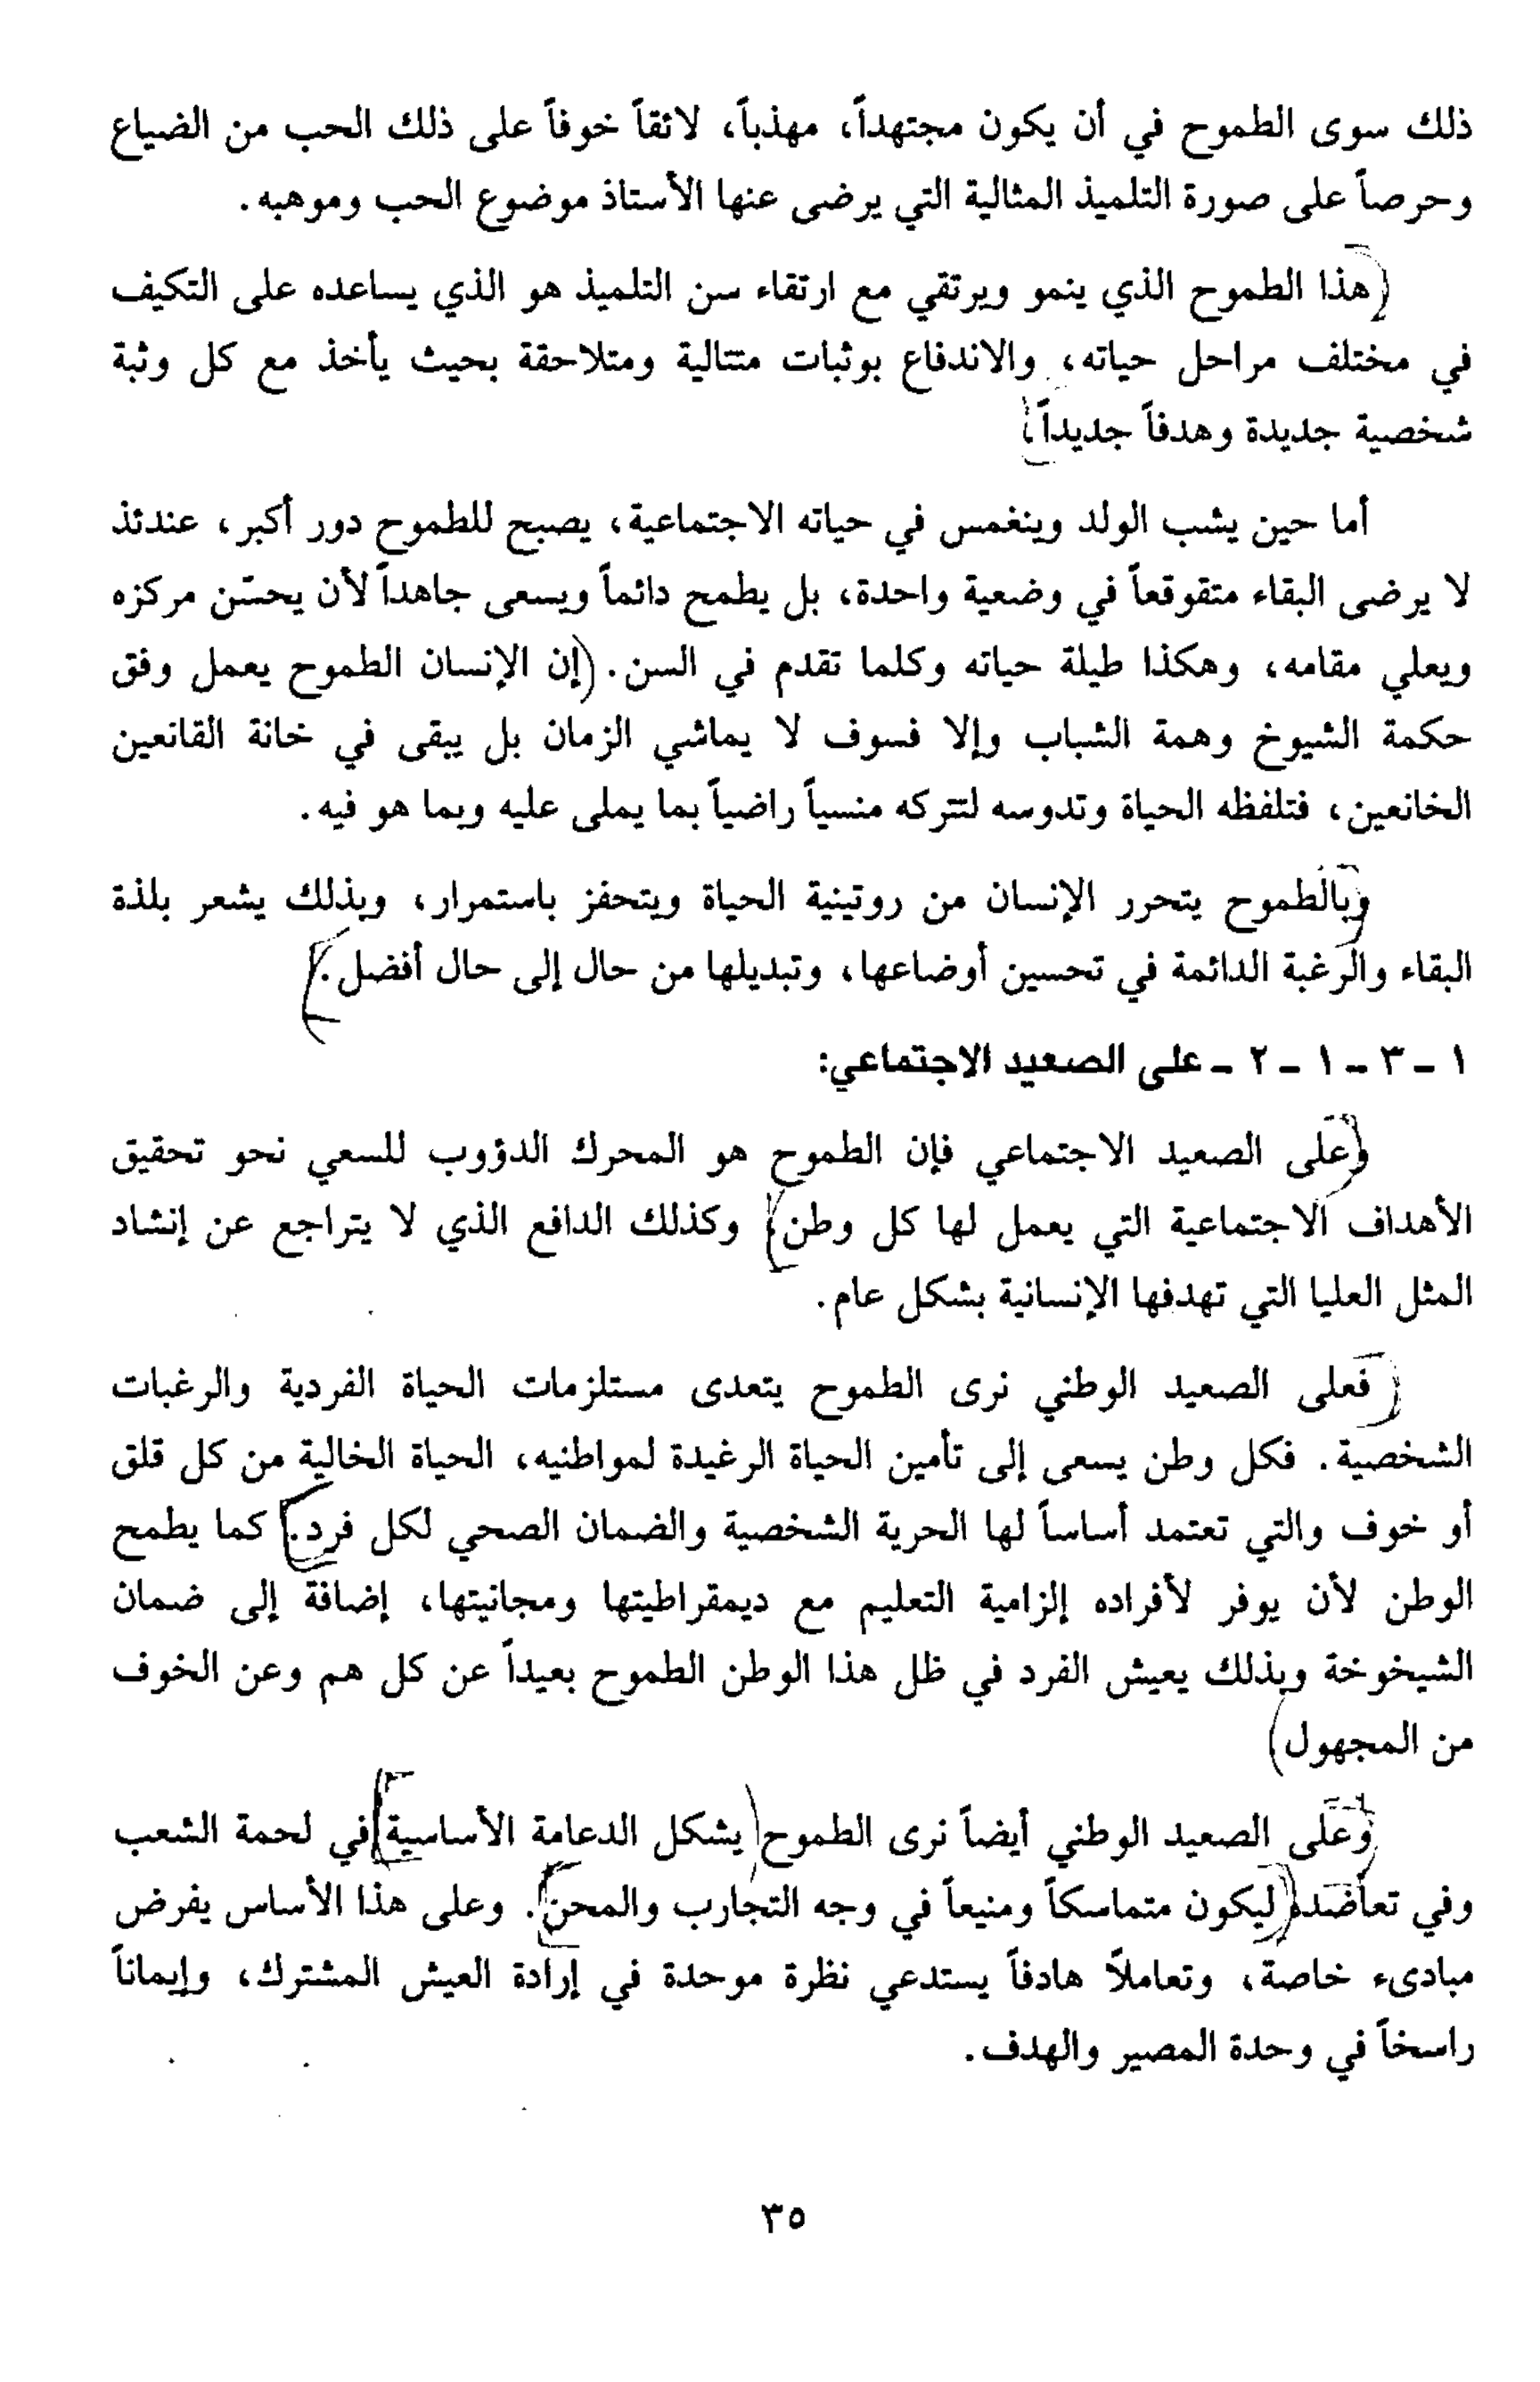 ذلك سوى الطموح في أن يكون مجتهداً، مهذباً، لائقاً خوفاً على ذلك الحب من الضياع
وحرصاً على صورة التلميذ المثالية التي يرضى عنها الأستاذ موضوع الحب وموهبه.
(هذا الطموح الذي ينمو ويرتقي مع ارتقاء سن التلميذ هو الذي يساعده على التكيف
في مختلف مراحل حياته، والاندفاع بوثبات متتالية ومتلاحقة بحيث يأخذ مع كل وثبة
شخصية جديدة وهدفاً جديداً.)
أما حين يشب الولد وينغمس في حياته الاجتماعية، يصبح للطموح دور أكبر، عندئذ
لا يرضى البقاء متقوقعاً في وضعية واحدة، بل يطمح دائماً ويسعى جاهداً لأن يحسّن مركزه
ويعلي مقامه، وهكذا طيلة حياته وكلما تقدم في السن. (إن الإنسان الطموح يعمل وفق
حكمة الشيوخ وهمة الشباب وإلا فسوف لا يماشي الزمان بل يبقى في خانة القانعين
الخانعين، فتلفظه الحياة وتدوسه لتتركه منسياً راضياً بما يملى عليه وبما هو فيه.
(وبالطموح يتحرر الإنسان من روتينية الحياة ويتحفز باستمرار، وبذلك يشعر بلذة
البقاء والرغبة الدائمة في تحسين أوضاعها، وتبديلها من حال إلى حال أفضل.)
١ - ٣ - ١ - ٢ - على الصعيد الاجتماعي:
(وعلى الصعيد الاجتماعي فإن الطموح هو المحرك الدؤوب للسعي نحو تحقيق
الأهداف الاجتماعية التي يعمل لها كل وطن) وكذلك الدافع الذي لا يتراجع عن إنشاد
المثل العليا التي تهدفها الإنسانية بشكل عام.
(فعلى الصعيد الوطني نرى الطموح يتعدى مستلزمات الحياة الفردية والرغبات
الشخصية. فكل وطن يسعى إلى تأمين الحياة الرغيدة لمواطنيه، الحياة الخالية من كل قلق
أو خوف والتي تعتمد أساساً لها الحرية الشخصية والضمان الصحي لكل فرد.) كما يطمح
الوطن لأن يوفر لأفراده إلزامية التعليم مع ديمقراطيتها ومجانيتها، إضافة إلى ضمان
الشيخوخة وبذلك يعيش الفرد في ظل هذا الوطن الطموح بعيداً عن كل هم وعن الخوف
من المجهول)
(وعلى الصعيد الوطني أيضاً نرى الطموح (يشكل الدعامة الأساسية) في لحمة الشعب
وفي تعاضده (ليكون متماسكاً ومنيعاً في وجه التجارب والمحن). وعلى هذا الأساس يفرض
مبادىء خاصة، وتعاملاً هادفاً يستدعي نظرة موحدة في إرادة العيش المشترك، وإيماناً
راسخاً في وحدة المصير والهدف.
٣٥